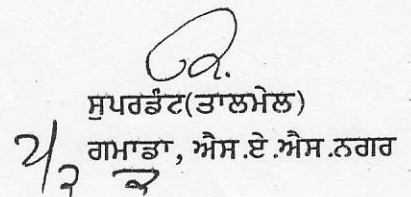 ਸੁਪਰਡੰਟ(ਤਾਲਮੇਲ)
ਗਮਾਡਾ, ਐਸ.ਏ.ਐਸ.ਨਗਰ